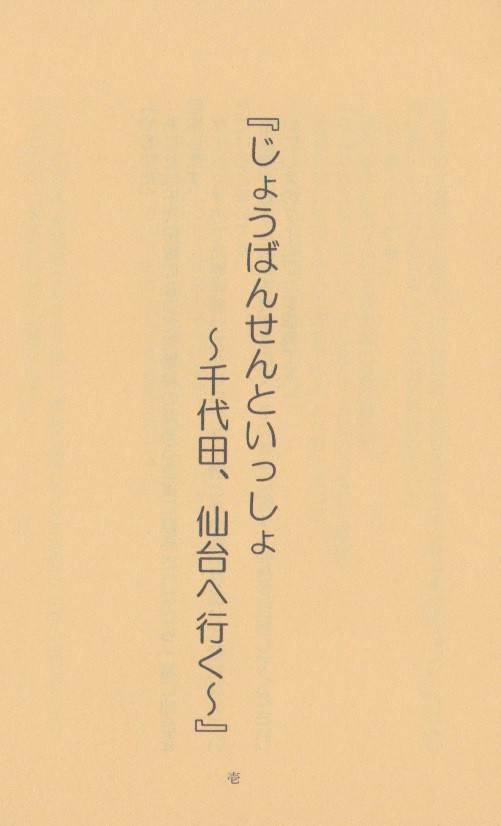 『じょうばんせんといっしょ
～千代田、仙台へ行く～』
壱